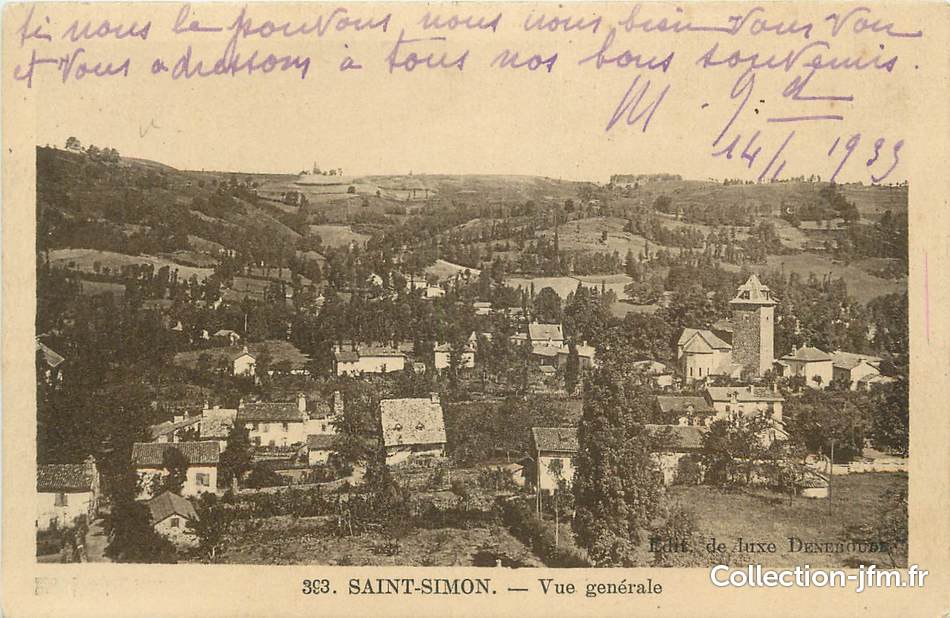 si nous le pouvons nous nous bien vous von
et vous adressons à tous nos bons souvenirs.
M. G. d
14/1 1933
Edit. de luxe DENEBOUDE
393. SAINT-SIMON. — Vue générale
www.Collection-jfm.fr